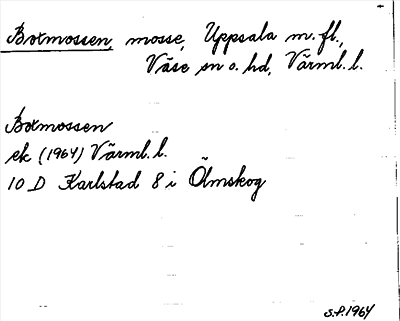 Botmossen, mosse, Uppsala m.fl.,
Väse sn o. hd, Värml. l.
Botmossen
ek (1964) Värml. l.
10 D Karlstad 8 i Ölmskog
S.P. 1964